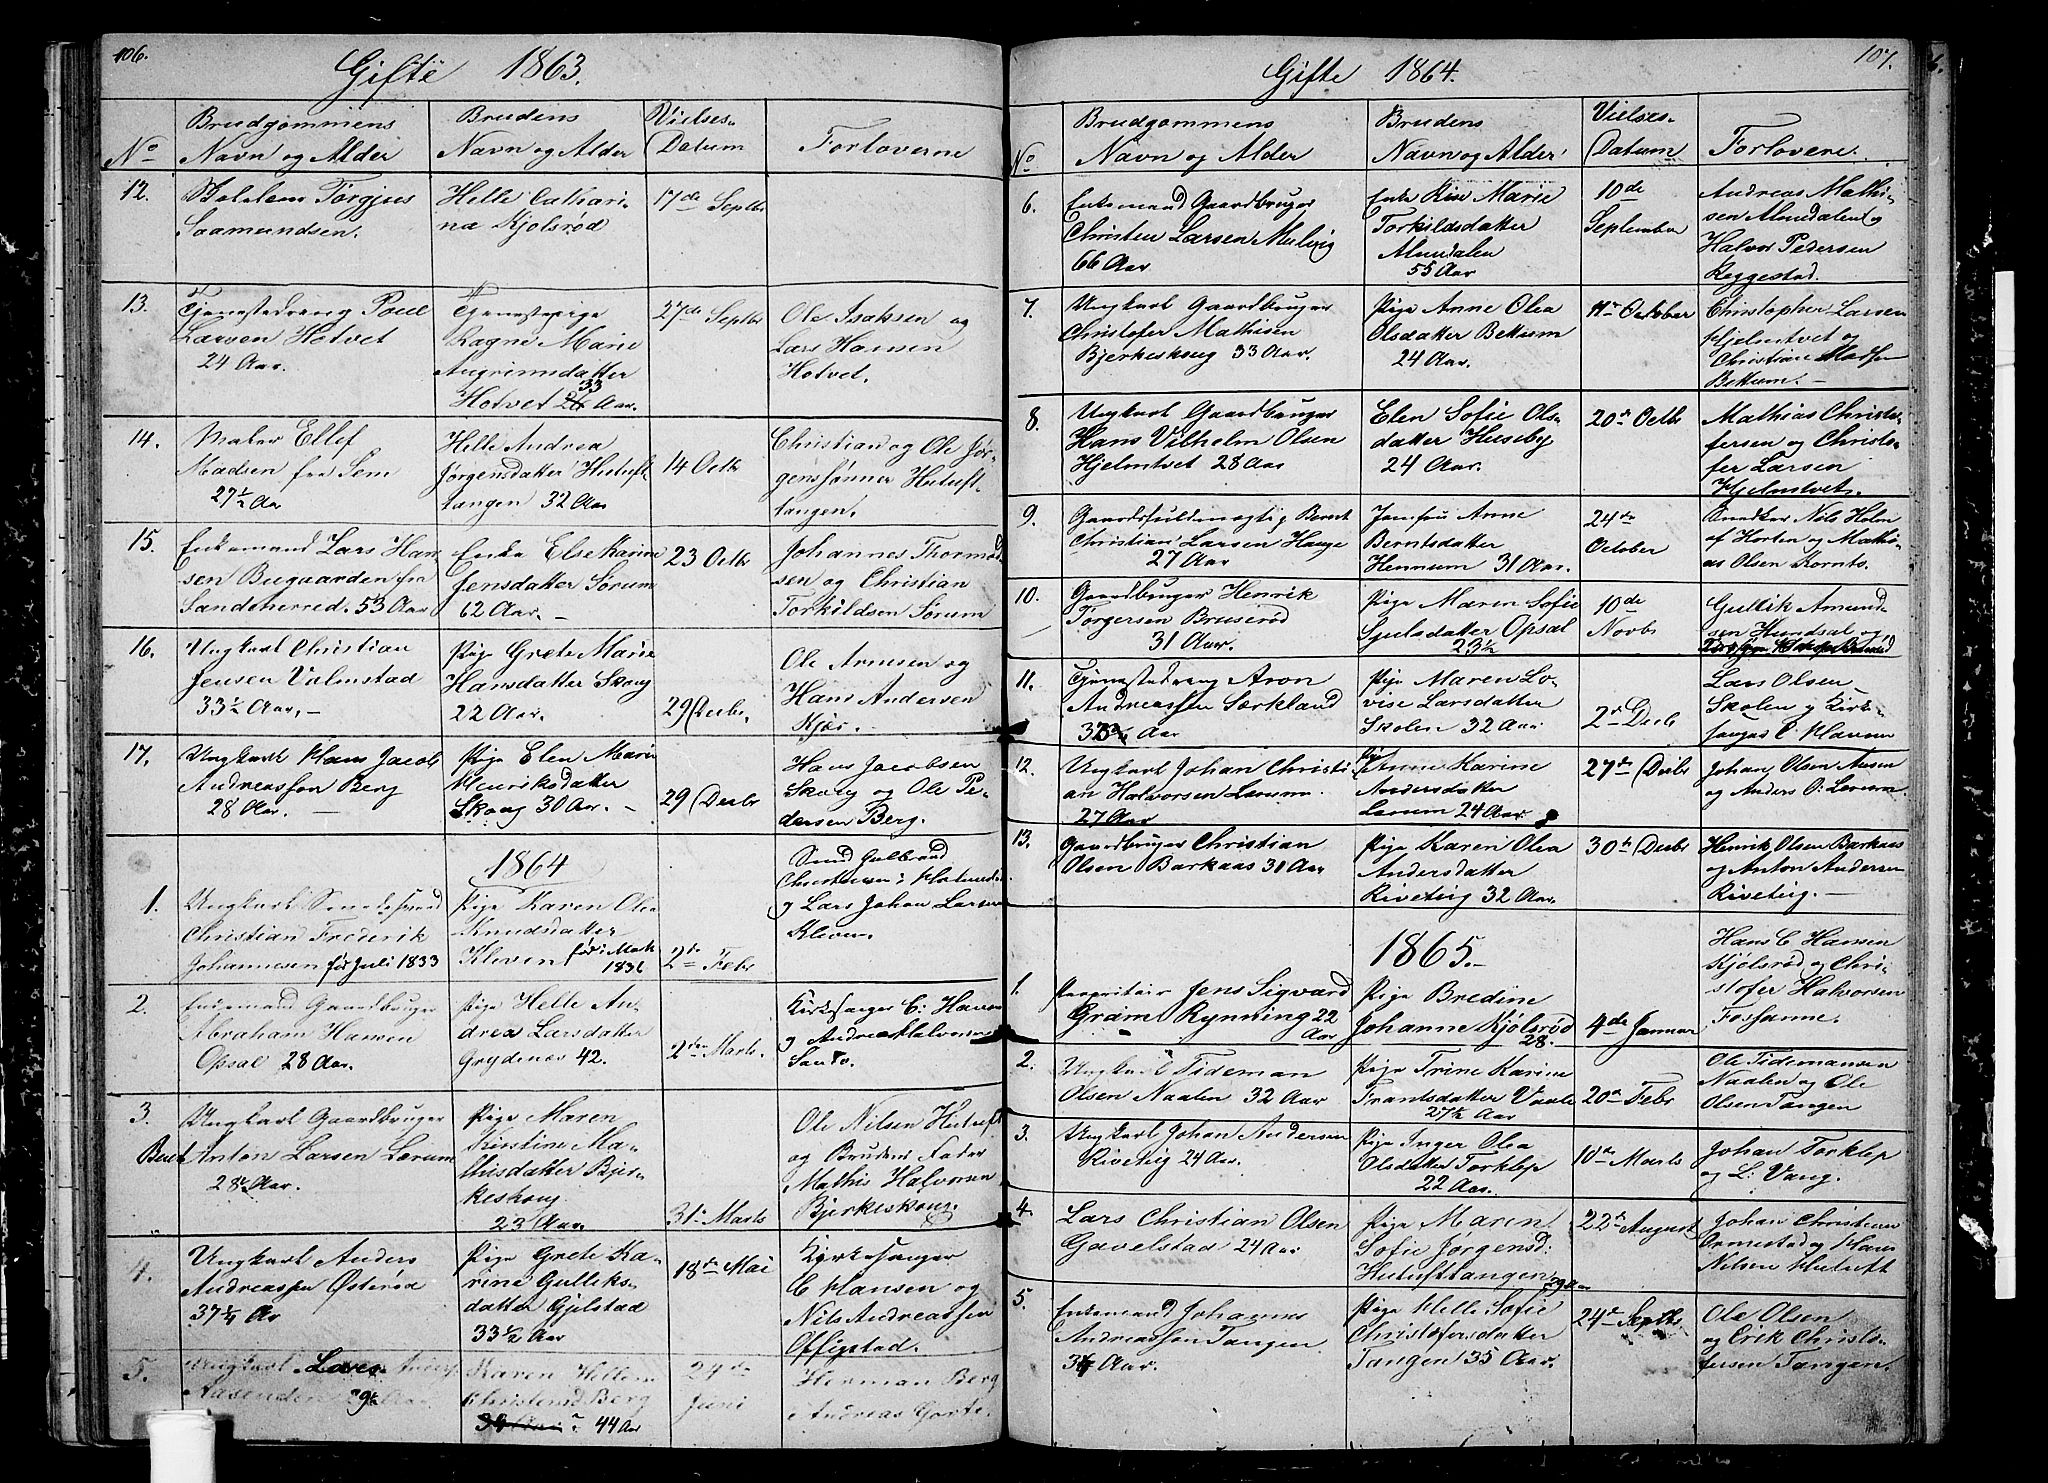 106.
Gifte 1863.
No
Brudgommens
Navn og Alder
Brudens
Navn og Alder
Vielses-
Datum
Forloverne
12.
Torgjus
Saamundsen.
Helle Cathari-
na Kjølsrød
17de Septbr
13.
Tjenestedreng Poul
Larsen Hotvet
24 Aar.
Tjenestepige
Ragne Marie
Angrimsdatter
Hotvet 33 Aar.
27de Septbr
Ole Isaksen og
Lars Hansen
Hotvet.
14.
Ellef
Madsen fra Sem
27½ Aar
Helle Andrea
Jørgensdatter Hutuft-
tangen 32 Aar
14 Octbr
Christian og Ole Jør-
genssønner Hutuft-
tangen.
15.
Enkemand Lars Han-
sen Bugaarden fra
Sandeherred. 53 Aar
Enke Else Karine
Jensdatter Sørum
62 Aar. -
23 Octbr
Johannes Thormod-
sen og Christian
Torkildsen Sørum
16.
Ungkarl Christian
Jensen Valmstad
33½ Aar. -
Pige Grete Marie
Hansdatter Skoug
22 Aar.
29 Decbr.
Ole Arnesen og
Hans Andersen
Kjær. -
17.
Ungkarl Hans Jacob
Andreassen Berg
28 Aar.
Pige Elen Marie
Henriksdatter
Skoug 30 Aar. -
29 Decbr
Hans Jacobsen
Skoug og Ole Pe-
dersen Berg.
1864
1.
Ungkarl
Christian Frederik
Johannesen før Juli 1833
Pige Karen Olea
Knudsdatter
Kleven
2de Febr
Smed Gulbrand
og Lars Johan Larsen
Kleven.
2.
Enkemand Gaardbruger
Abraham Hansen
Opsal 28 Aar.
Pige Helle An-
drea Larsdatter
Grydenæs 42.
2den Marts.
Kirksanger C: Hansen
og Andreas Halvorsen
3.
Ungkarl Gaardbruger
Anton Larsen Lerum
28 Aar.
Pige Maren
Kirstine Ma-
thisdatter Bjer-
keskoug
23 Aar.
31 Marts
Ole Nilsen Hutuft
og Brudens Fader
Mathis Halvorsen
Bjerkeskoug.
4.
Ungkarl Anders
Andreassen Østerød
37¼ Aar
Pige Grete Ka-
rine Gulliks-
datter Gjelstad
33½ Aar
18de Mai
Kirkesanger
C Hansen og
Nils Andreassen
Offigstad.
5.
Ungkarl
Karen Hellene
Christensd Berg
44 Aar
24de
Juni
Herman Berg
Andreas Gorte.
107.
Gifte 1864.
No
Brudgommens
Navn og Alder
Brudens
Navn og Alder
Vielses-
Datum
Forlovere.
6.
Enkemand Gaardbruger
Christen Larsen Mulvig
66 Aar
Enke Marie
Torkildsdatter
Almedalen
55 Aar
10de
September
Andreas Mathi-
sen Almedalen og
Halvor Pedersen
Reggestad.
7.
Ungkarl Gaardbruger
Christofer Mathisen
Bjerkeskoug 33 Aar.
Pige Anne Olea
Olsdatter Bettum
24 Aar.
October
Christopher Larsen
Hjelmtvet og
Christian Madsen
Bettum. -
8.
Ungkarl Gaardbruger
Hans Vilhelm Olsen
Hjelmtvet 28 Aar
Elen Sofie Ols-
datter Huseby
24 Aar.
20de Octbr
Mathias Christo-
fersen og Christo-
fer Larsen
Hjelmtvet.
9.
Gaardsfuldmægtig Bernt
Christian Larsen Hauge
27 Aar
Jomfru Anne
Berntsdatter
Hennum 31 Aar.
24de
October
Nils Holm
af Horten og Mathi-
as Olsen Kornts.
10.
Gaardbruger Henrik
Torgersen Bruserød
31 Aar.
Pige Maren Sofie
Sjulsdatter Opsal
23½
10de
Novbr
Gullik Amund-
sen Hundsal og
11.
Tjenestedreng Aron
Andreassen Særkland
Aar
Pige Maren Lo-
vise Larsdatter
Skolen 32 Aar
2de Decb
Lars Olsen
Skolen og Kirke-
sanger C Hansen
12.
Ungkarl Johan Christi-
an Halvorsen Lerum.
27 Aar
Pige Anne Karine
Andersdatter
Lerum 24 Aar.
27de Decbr
Johan Olsen Aasen
og Anders O: Lerum.
13.
Gaardbruger Christian
Olsen Barkaas 30 Aar
Pige Karen Olea
Andersdatter
Rivetug 32 Aar.
30te Decbr
Henrik Olsen Barkaas
og Anton Andersen
Rivetug. -
1865.-
1.
Jens Sigvard
Gram Rynning 22
Aar
Pige Bredine
Johanne Kjølsrød
28.
4de Januar
Hans C Hansen
Kjølsrød og Chri-
stofer Halvorsen
Fossanne.
2.
Ungkarl Tideman
Olsen Naalen 32 Aar
Pige Trine Karine
Frantsdatter Vaale
27½ Aar
20de Febr
Ole Tidemansen
Naalen og Ole
Olsen Tangen
3.
Ungkarl Johan Andersen
Rivetug 24 Aar.
Pige Inger Olea
Olsdatter Torklep
22 Aar.
10de Marts
Johan Torklep
og L: Vang.
4.
Lars Christian Olsen
Gavelstad 24 Aar
Pige Maren
Sofie Jørgensd:
Hutufttangen 29 Aar
22de August
Johan Christian
Ormestad og Hans
Nilsen Hutuft
5.
Enkemand Johannes
Andreassen Tangen
34 Aar.
Pige Helle Sofie
Christofersdatter
Tangen 35 Aar.
24de Septbr
Ole Olsen
og Erik Christo-
fersen Tangen.